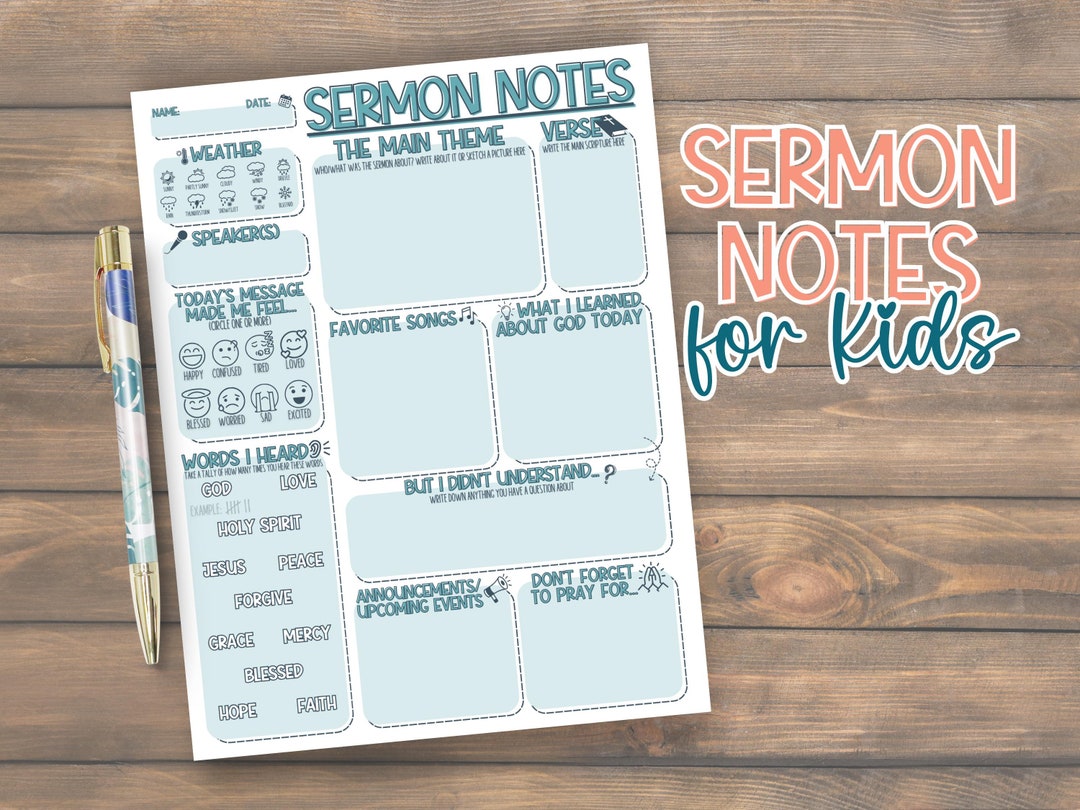 NAME: DATE:
SERMON NOTES
WEATHER
SUNNY PARTLY SUNNY CLOUDY WINDY
RAIN THUNDERSTORM SNOW/SLEET SNOW BLIZZARD
SPEAKER(S)
TODAY'S MESSAGE
MADE ME FEEL...
(CIRCLE ONE OR MORE)
HAPPY CONFUSED TIRED LOVED
BLESSED WORRIED SAD EXCITED
WORDS I HEARD
TAKE A TALLY OF HOW MANY TIMES YOU HEAR THESE WORDS
GOD LOVE
EXAMPLE:
HOLY SPIRIT
JESUS PEACE
FORGIVE
GRACE MERCY
BLESSED
HOPE FAITH
THE MAIN THEME
WHO/WHAT WAS THE SERMON ABOUT? WRITE ABOUT IT OR SKETCH A PICTURE HERE
VERSE
WRITE THE MAIN SCRIPTURE HERE
FAVORITE SONGS
WHAT I LEARNED
ABOUT GOD TODAY
BUT I DIDN'T UNDERSTAND... ?
WRITE DOWN ANYTHING YOU HAVE A QUESTION ABOUT
ANNOUNCEMENTS/
UPCOMING EVENTS
DON'T FORGET
TO PRAY FOR...
SERMON
NOTES
for kids